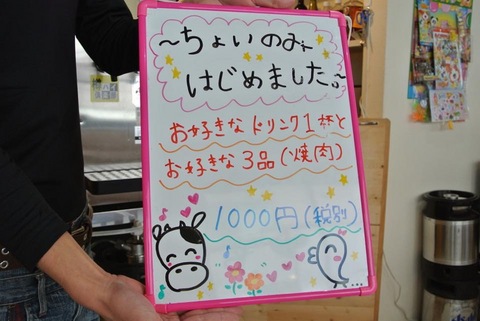 ～ちょいのみ
はじめました。～
お好きなドリンク1杯と
お好きな3品(焼肉)
1000円(税別)